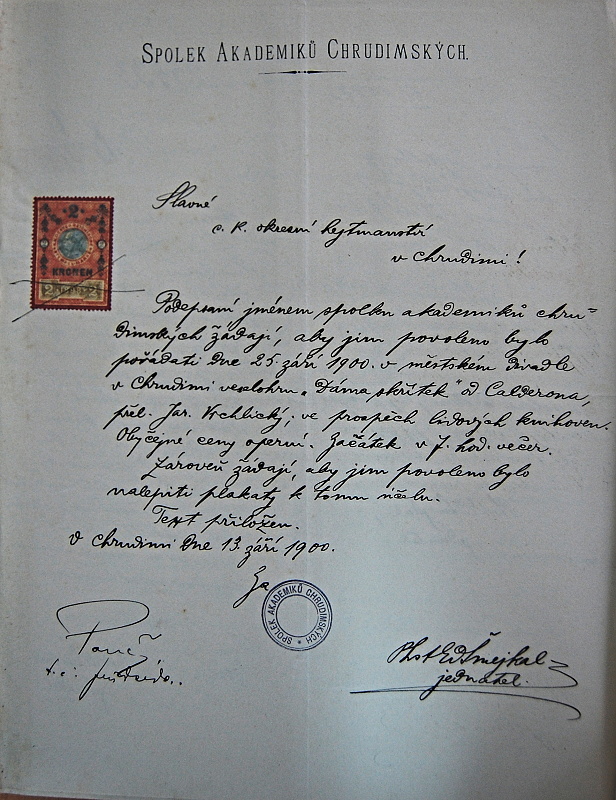 SPOLEK AKADEMIKŮ CHRUDIMSKÝCH.
2
KRONEN
Slavné
c. k. okresní hejtmanství
v Chrudimi!
Podepsaní jménem spolku akademiků chru-
dimských žádají, aby jim povoleno bylo
pořádati dne 25. září 1900. v městském divadle
v Chrudimi veselohru „Dáma skřítek" od Calderona,
přel. Jar. Vrchlický; ve prospěch lidových knihoven.
Obyčejné ceny operní. Začátek v 7. hod. večer.
Zároveň žádají, aby jim povoleno bylo
nalepiti plakáty k tomu účelu.
Text přiložen.
V Chrudimi dne 13. září 1900.
Za
SPOLEK AKADEMIKŮ CHRUDIMSKÝCH
t. č. předseda.
Šmejkal
jednatel.